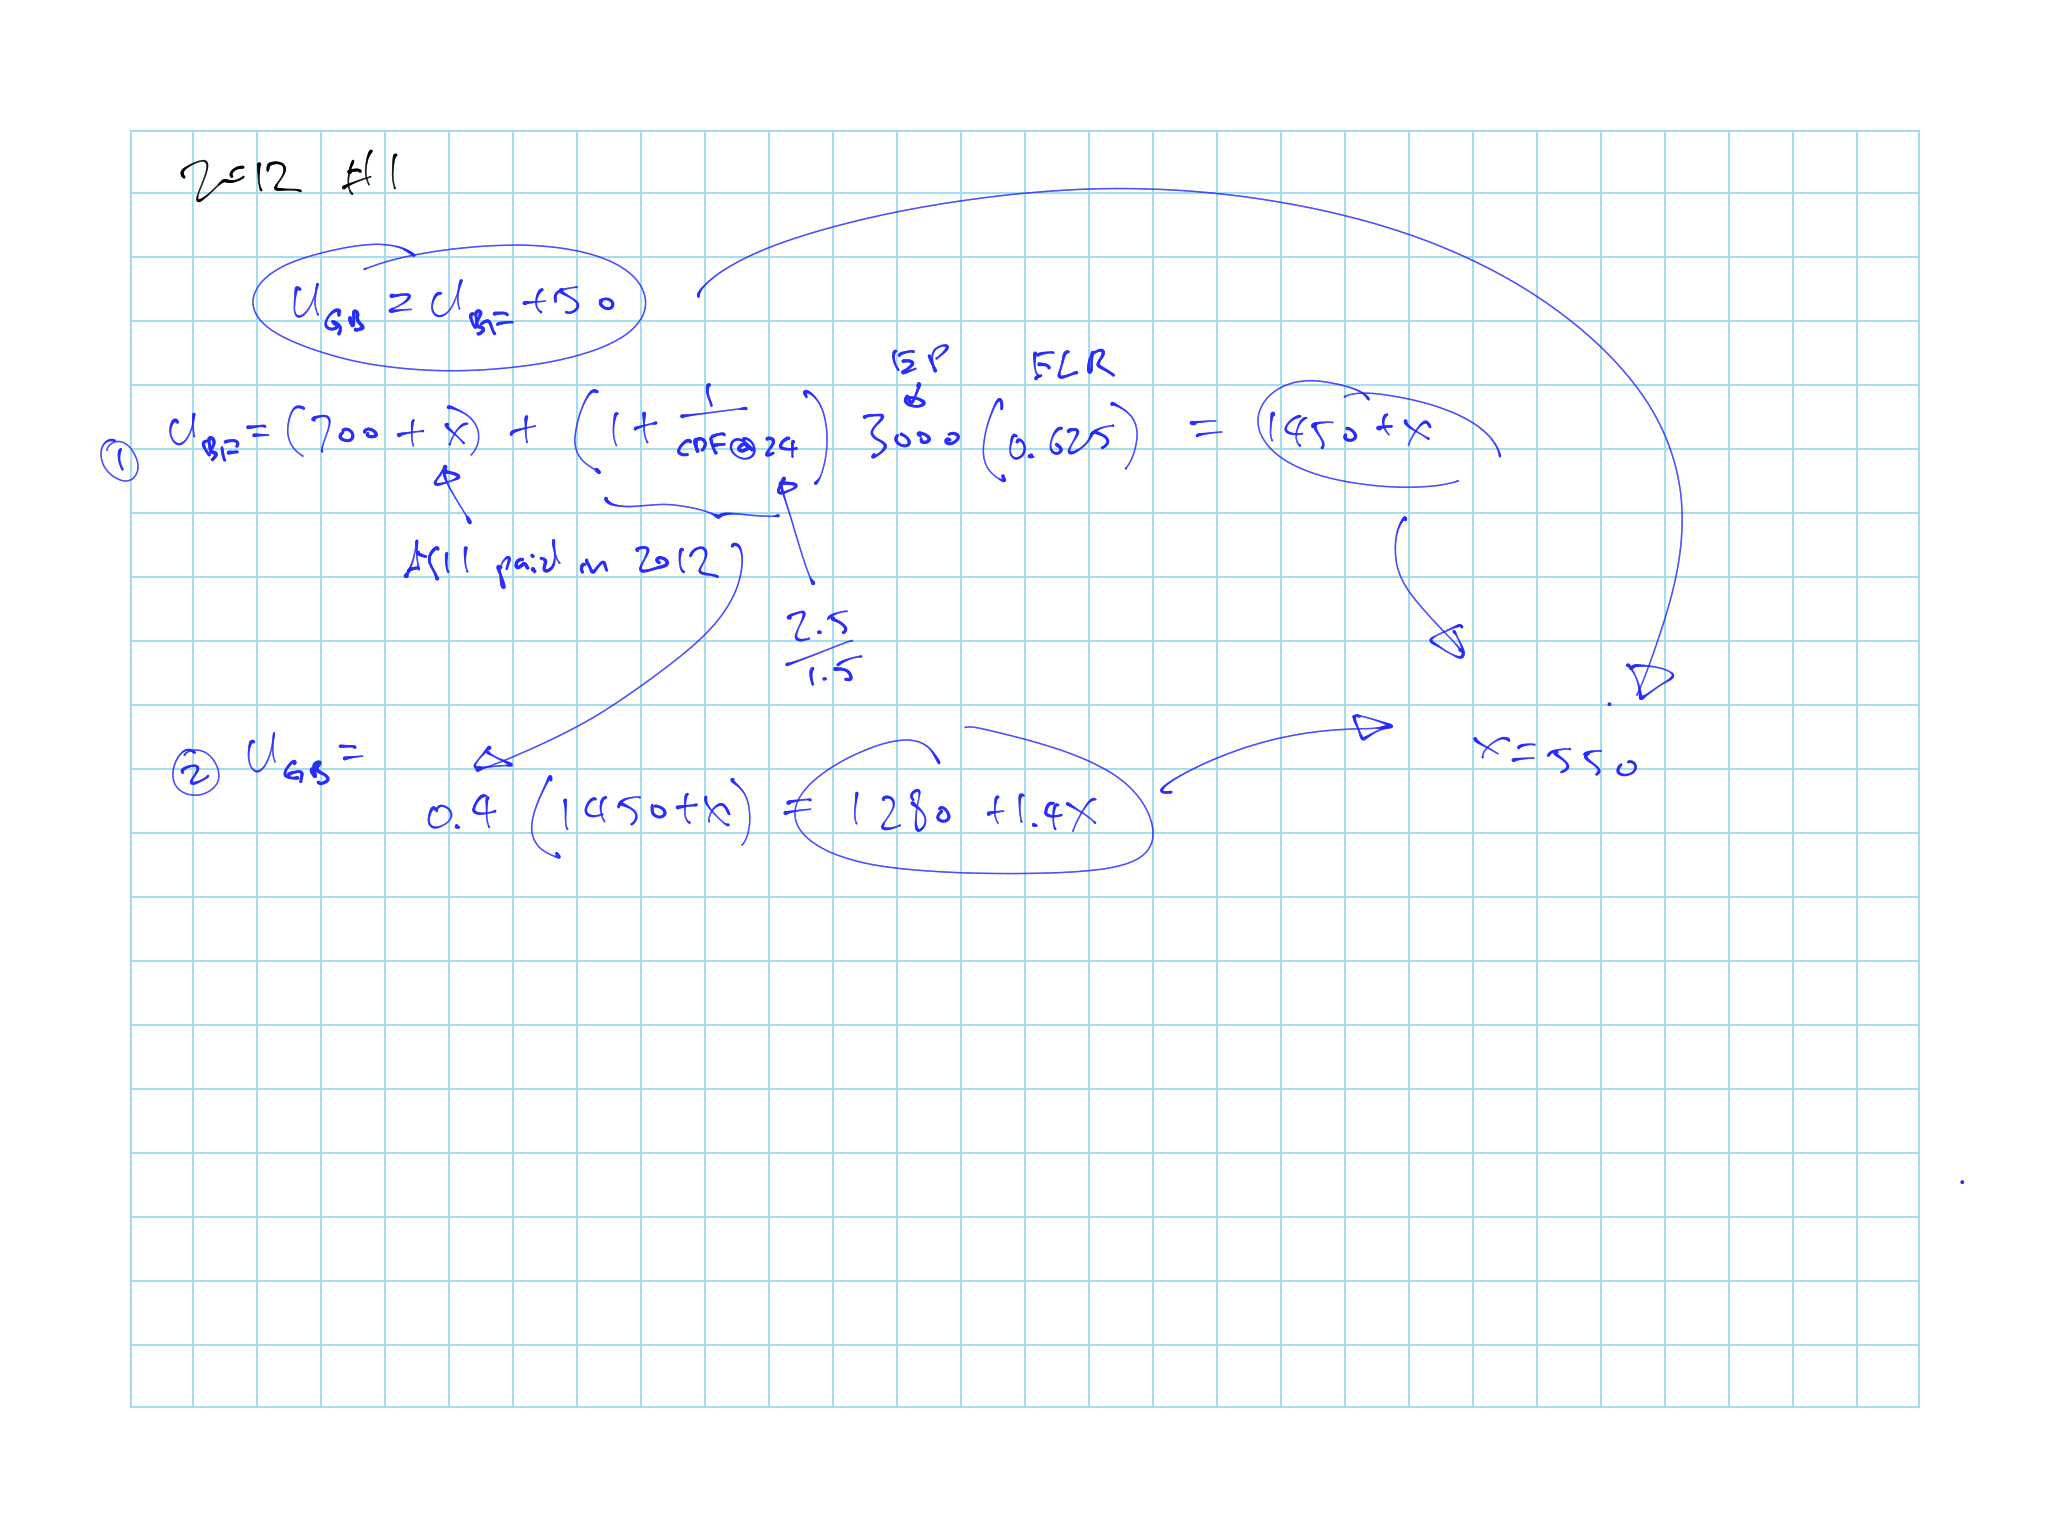 2012 #1
U_GB = U_BF + 50
EP ELR
① U_BF = (700 + x) + (1 + 1/CDF@24) 3000 (0.625) = 1450 + x
AY11 paid in 2012
2.5/1.5
② U_GB =
x = 550
0.4 (1450 + x) = 1280 + 1.4x